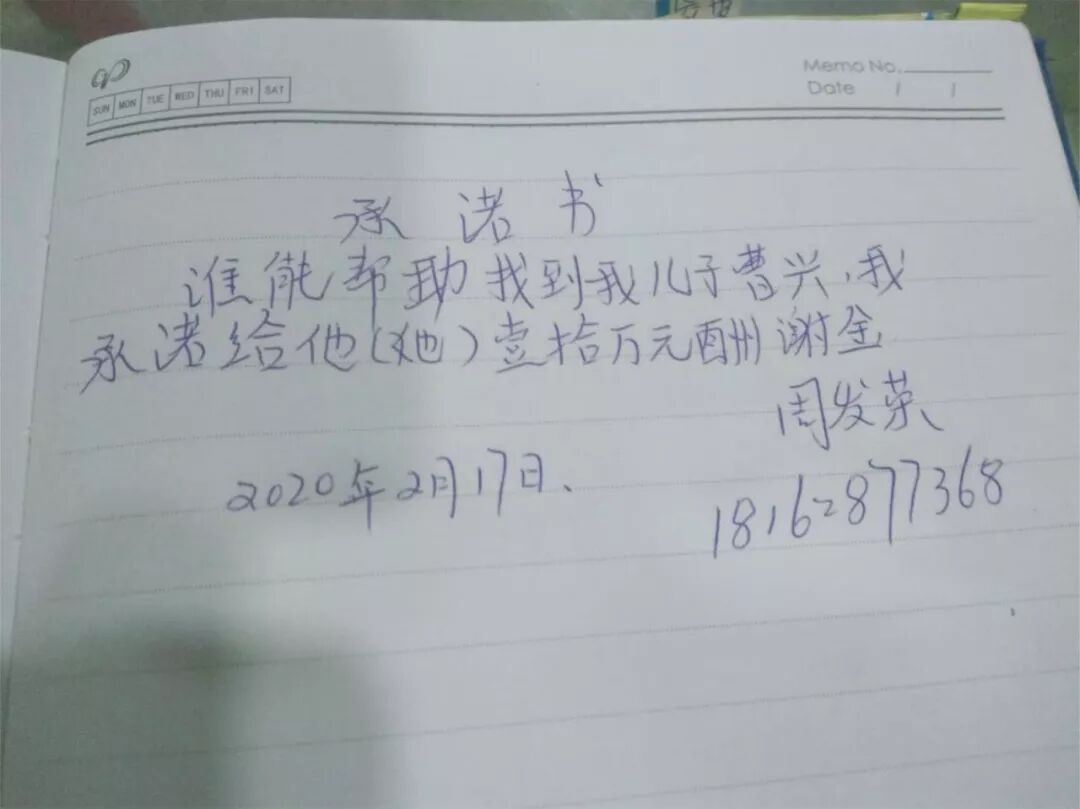 SUN MON TUE WED THU FRI SAT
Memo No.
Date / /
承诺书
谁能帮助找到我儿子曹兴,我
承诺给他(她)壹拾万元酬谢金
周发荣
2020年2月17日、
18162877368